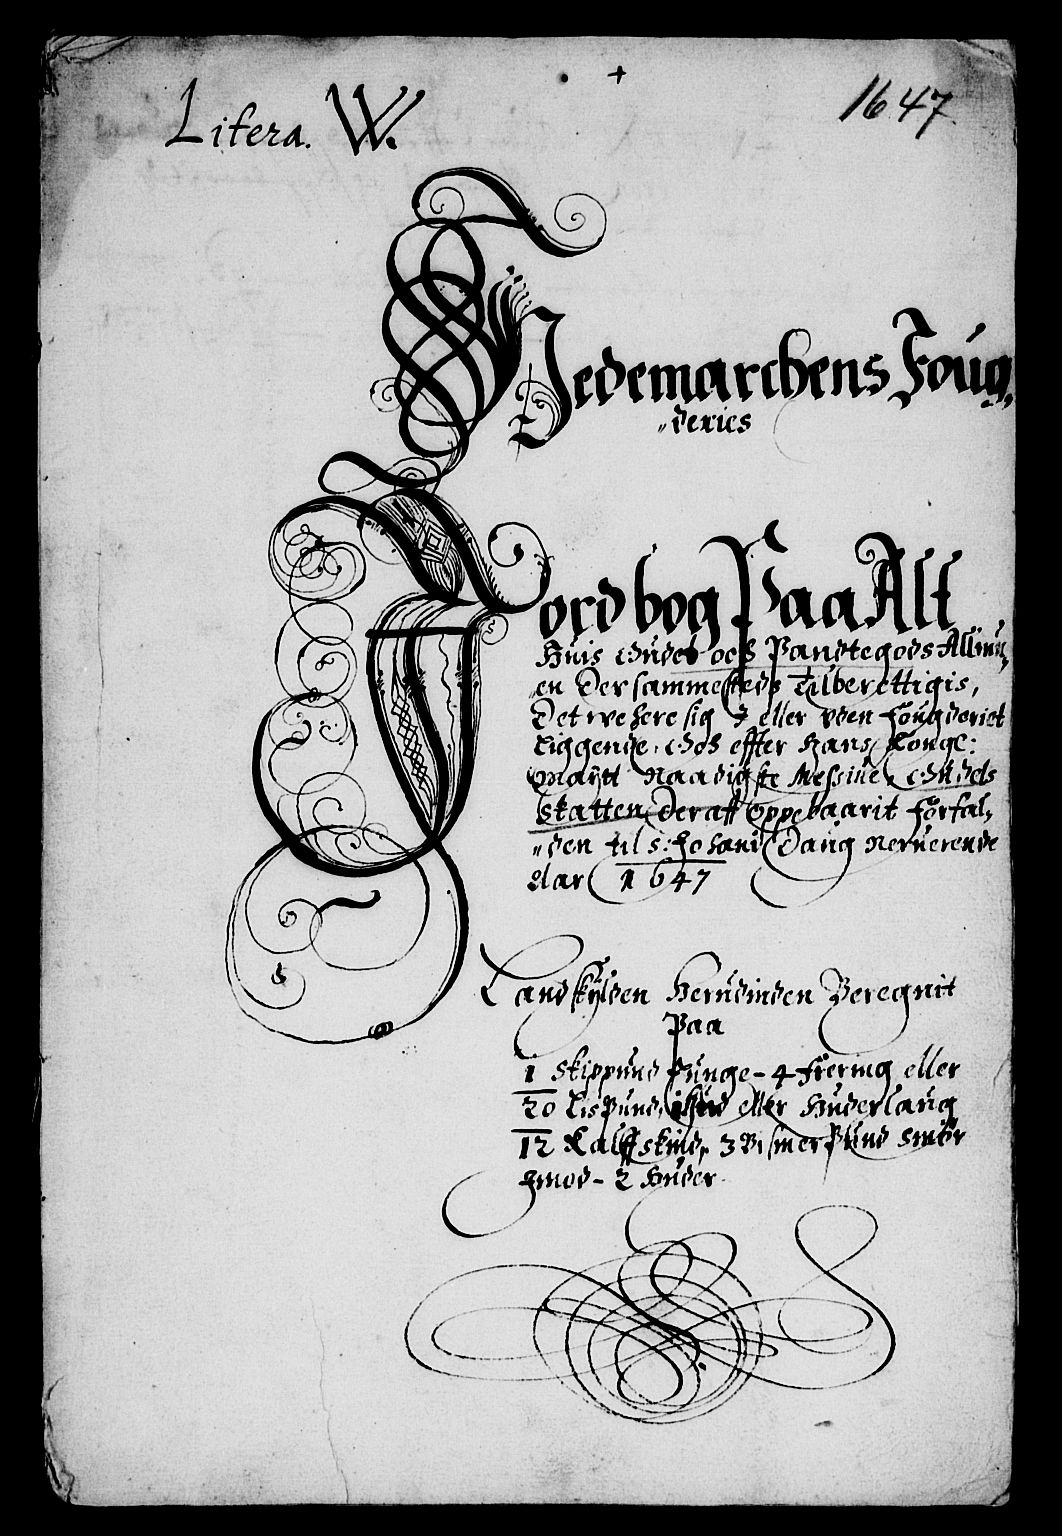 Litera. W.
1647
Hedemarchens Foug,
„deries
Jordbog Paa Alt
Huis Gudtz och Pandtegods Allmu,
„en Der sammesteds Tilberettigis,
Det were sig J eller vden Fougderiet
Liggende, Och effter Hans Kongl:
Maÿtt Naadigste Missive, Gudets
Skatten Deraff Oppebaarit Förfal,
„den til S: Johans Daug Neruerende
Aar 1647
Landskÿlden Herudinden Beregnit
Paa
1 Skippund Tunge - 4 Frering eller
20 Lispund, 1 Hud eller Huderlaug
12 Kalffskind, 3 Bismerpund Smör
Jmod - 2 Huder